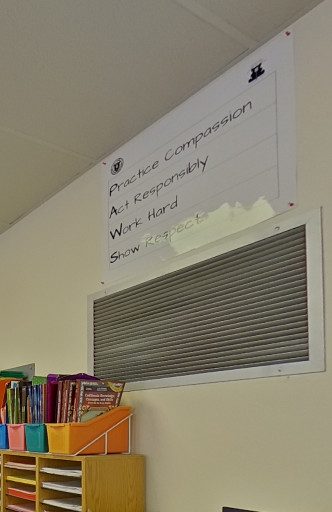 Practice Compassion
Act Responsibly
Work Hard
Show Respect